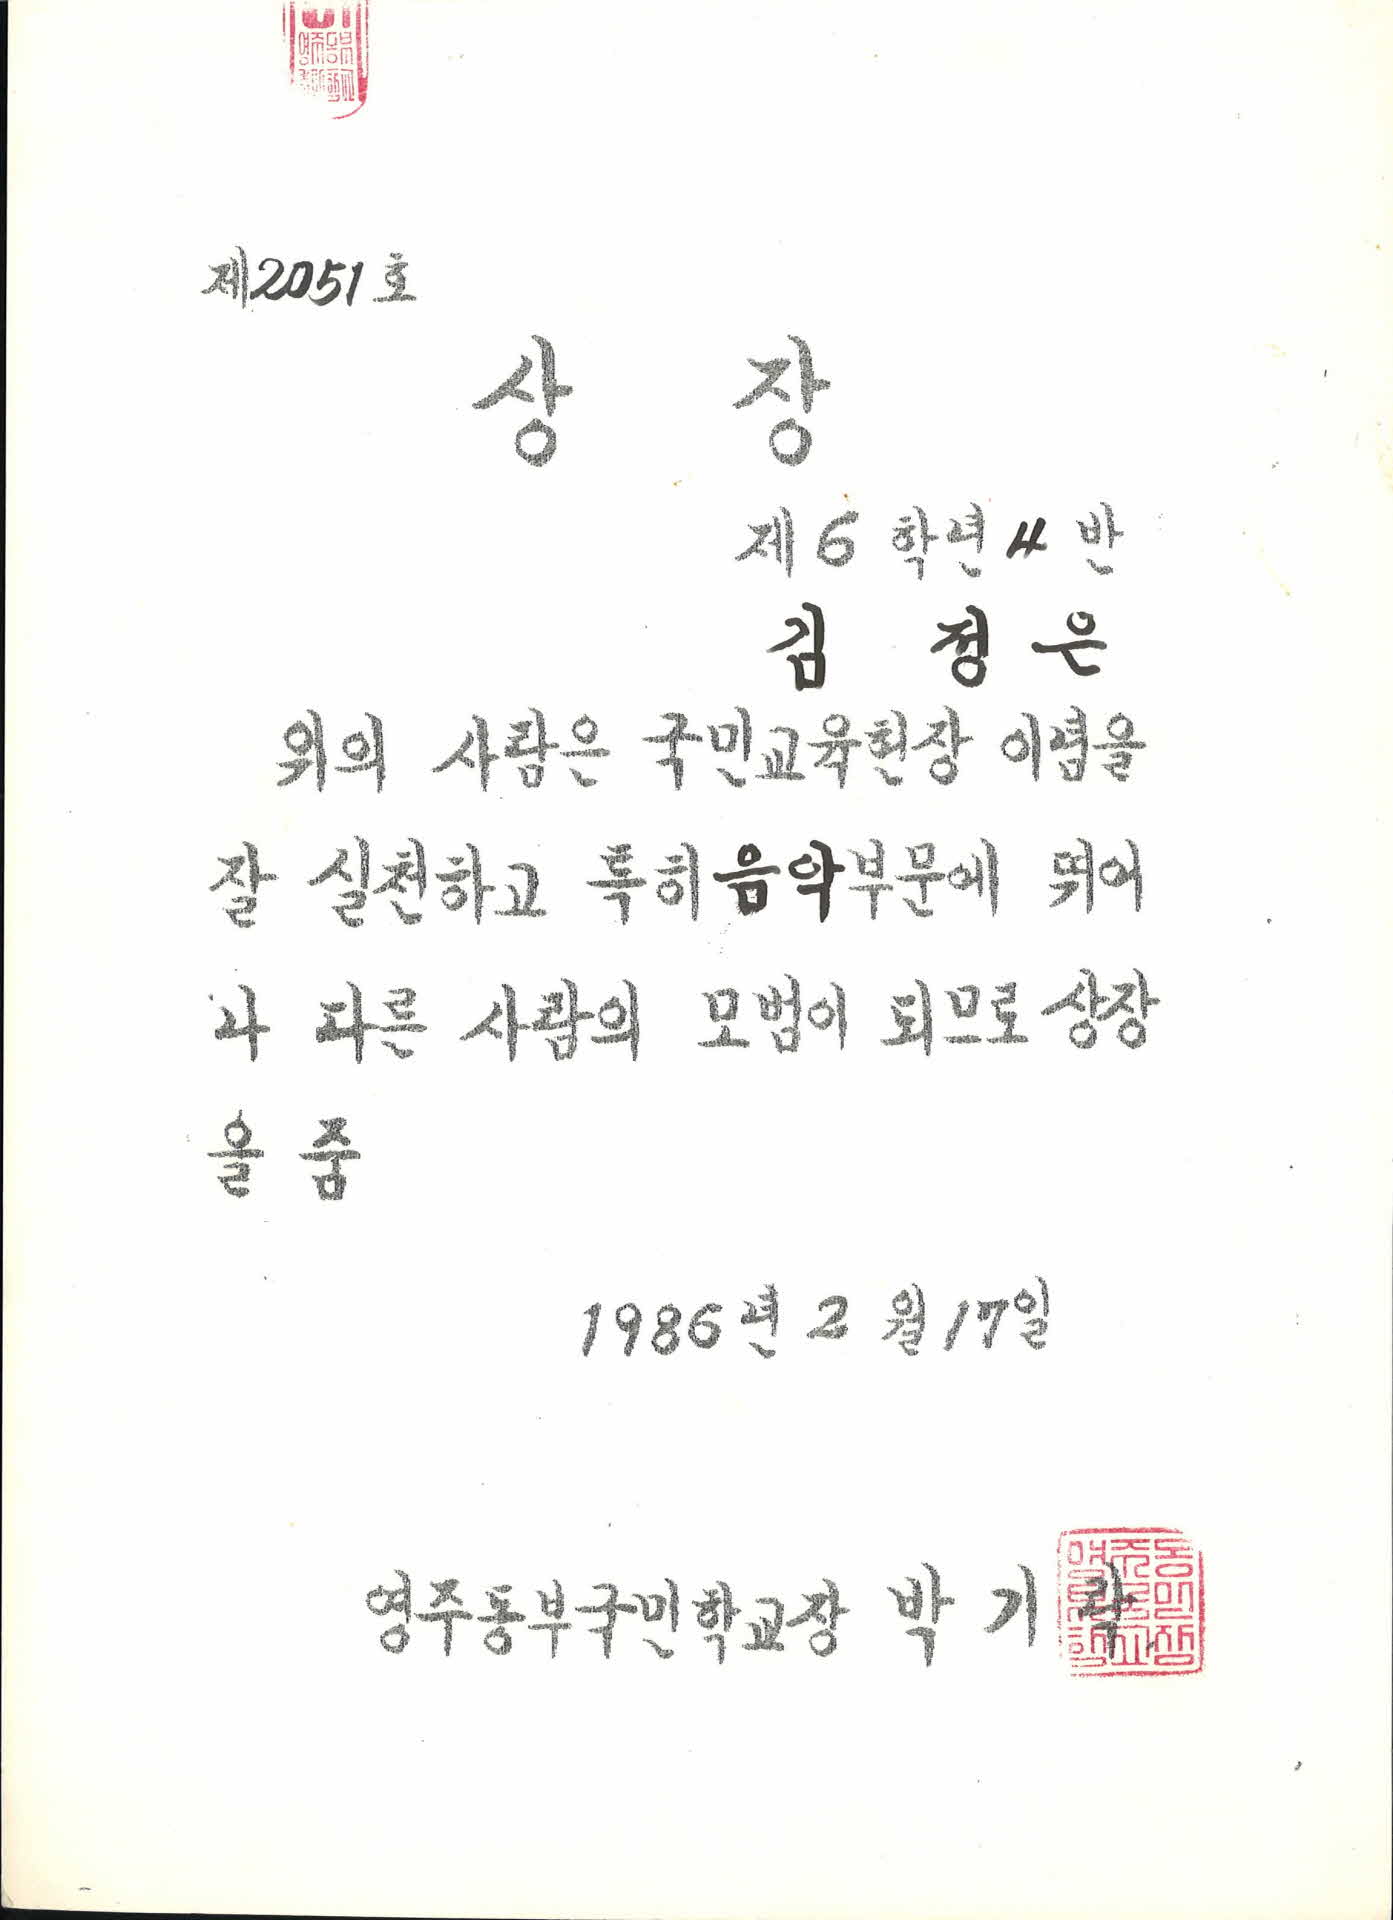 제2051호
상 장
제6학년4반
김 정은
위의 사람은 국민교육헌장 이념을
잘 실천하고 특히음악부문에 뛰어
나 다른 사람의 모범이 되므로상장
을 줌
1986년 2월17일
영주동부국민학교장 박기